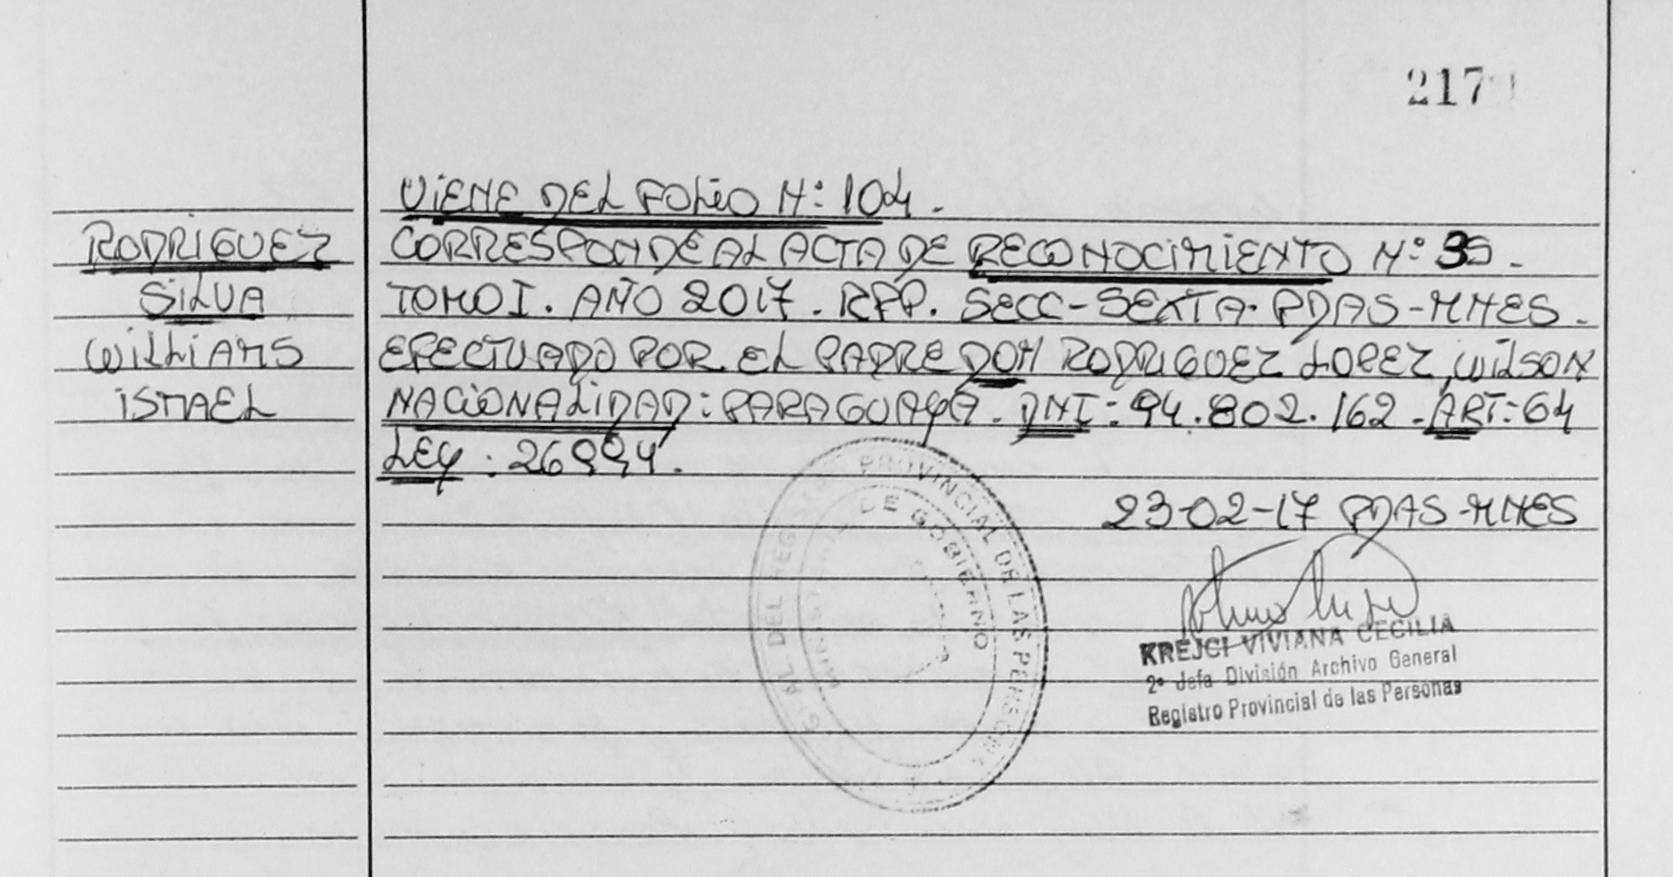 217
VIENE DEL FOLIO N: 104.
RODRIGUEZ
SILVA
WILLIAMS
ISMAEL
CORRESPONDE AL ACTA DE RECONOCIMIENTO N: 35.
TOMO I. AÑO 2017. RPP. SECC-SEXTA. PDAS-MNES.
EFECTUADO POR EL PADRE DON RODRIGUEZ LOPEZ, WILSON
NACIONALIDAD: PARAGUAYA. DNI: 94.802.162. ART: 64
LEY: 26994.
23-02-17 PDAS-MNES
PROVINCIAL DE LAS PERSONAS
DEL REGISTRO
DE GOBIERNO
KREJCI VIVIANA CECILIA
2º Jefa División Archivo General
Registro Provincial de las Personas